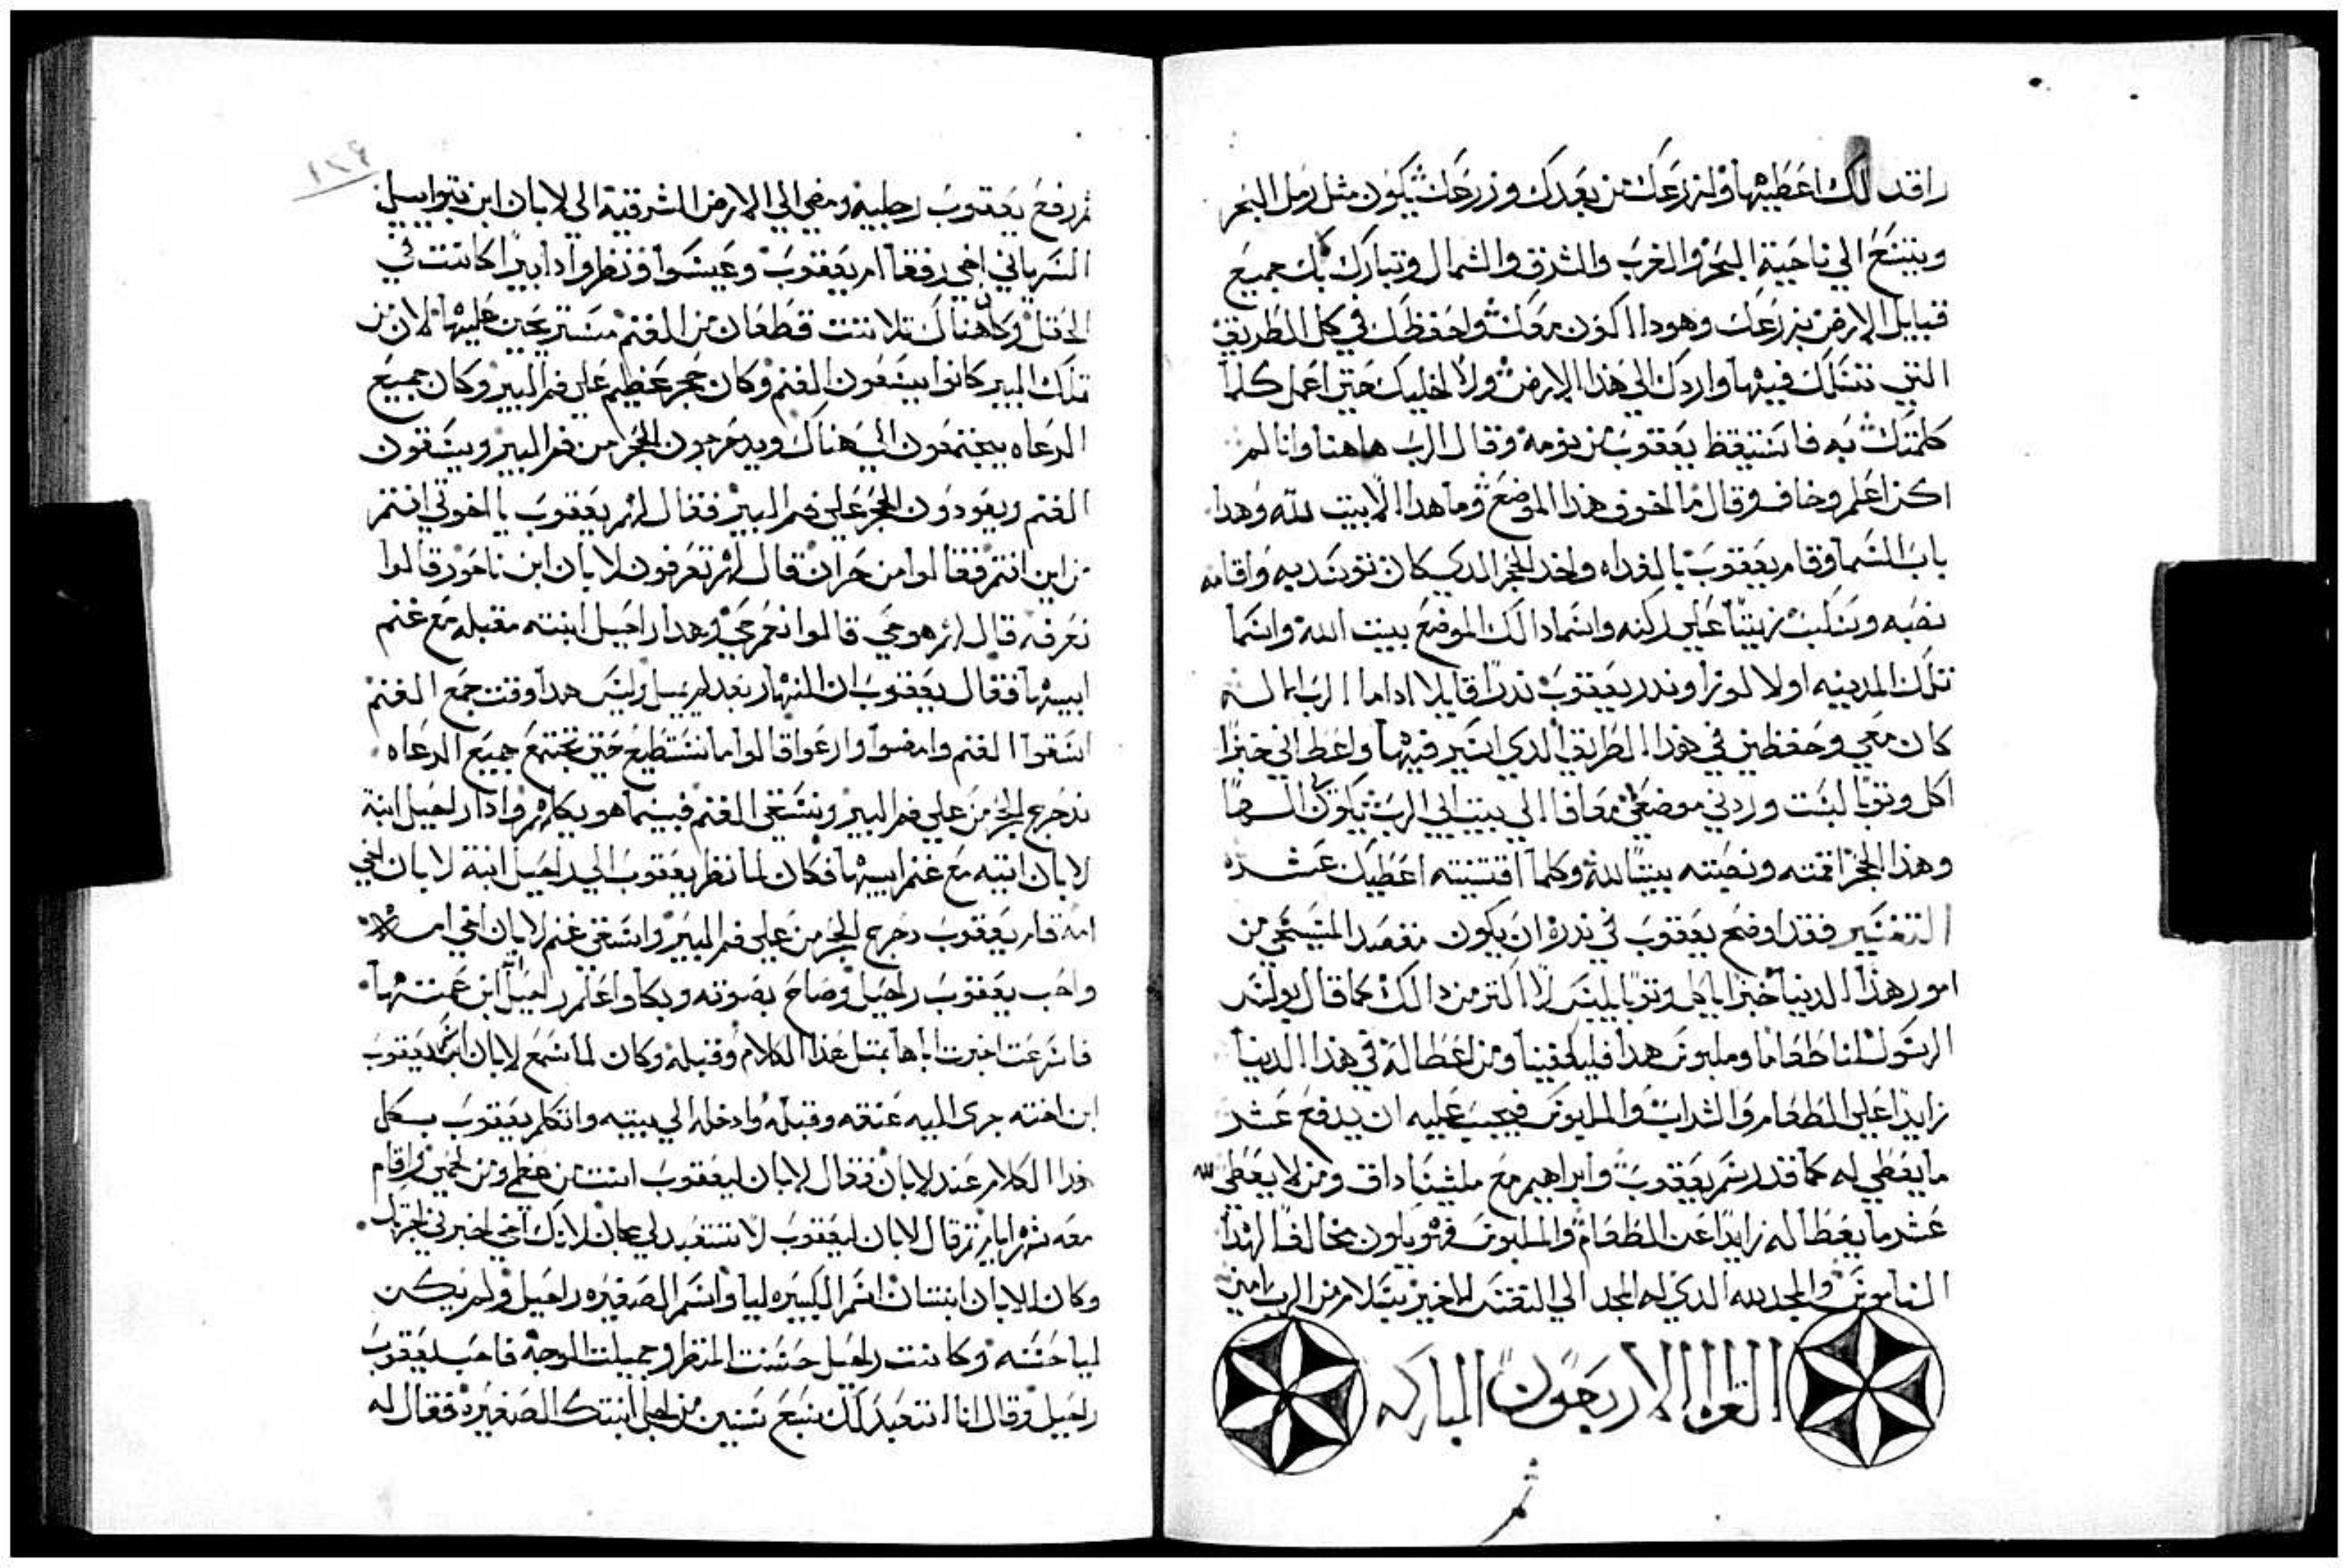 راقد لك اعطيها ولزرعك من بعدك وزرعك يكون مثل رمل البحر
ويتسع الي ناحية البحر والغرب والشرق والشمال وتبارك بك جميع
قبايل الارض بزرعك وهودا اكون معك واحفظك في كل الطريق
التي تسلك فيها واردك الي هذا الارض ولا اخليك حتي اعمل كلما
كلمتك به فاستيقظ يعقوب من نومه وقال الرب هاهنا وانا لم
اكن اعلم وخاف وقال ما اخوف هذا الموضع وما هدا الا بيت لله وهدا
باب السما وقام يعقوب بالغداه واخد الحجر الدي كان توسد به واقامه
نصبه وسكب زيتا علي ركنه واسما دالك الموضع بيت الله واسما
تلك المدينه اولا لوزا وندر يعقوب ندرا قايلا اداما الرب الاله
كان معي وحفظني في هذا الطريق الدي اسير فيها واعطاني خبزا
اكل وتوبا لبست وردني موضعي معافا الي بيت ابي الرب يكون الها
وهذا الحجر اقمته ونصبته بيتا لله وكلما اقتنيته اعطيك عشره
التفسير فقد اوضح يعقوب في ندره ان يكون مقصد المسيحي من
امور هذا الدنيا خبزا ياكل وتوبا يلبس لا اكتر من دالك كما قال بولس
الرسول لنا طعاما وملبوس هدا فليكفينا ومن اعطا له في هذا الدنيا
زايدا علي الطعام والشراب والملبوس فيجب عليه ان يدفع عشر
ما يعطي له كما قد رسم يعقوب وابراهيم مع ملشيساداق ومن لا يعطي لله
عشر ما يعطا له زايدا عن الطعام والملبوس فهو يكون مخالفا لهدا
الناموس والمجد لله الدي له المجد الي النفس الاخير بسلام من الرب امين
القراه الاربعون المباركه
ثم
١٢٤
ثم رفع يعقوب رجليه ومضي الي الارض الشرقية الي لابان ابن بتواييل
السرياني اخي رفقا ام يعقوب وعيسوا ونظر وادا بيرا كانت في
الحقل وكان هناك تلاتت قطعان من الغنم مستريحين عليها لان من
تلك البير كانوا يسقون الغنم وكان حجر عظيم علي فم البير وكان جميع
الرعاه يجتمعون الي هناك ويدحرجون الحجر من فم البير ويسقون
الغنم ويعودون الحجر علي فم البير فقال لهم يعقوب يا اخوتي انتم
من اين انتم فقالوا من حران قال لهم تعرفون لابان ابن ناحور قالوا
نعرفه قال لهم هو حي قالوا نعم حي وهدا راحيل ابنته مقبله مع غنم
ابيها فقال يعقوب ان النهار بعد لم يميل وليس هدا وقت جمع الغنم
اسقوا الغنم وامضوا وارعوا قالوا ما نستطيع حتي تجتمع جميع الرعاه
ندحرج الحجر من علي فم البير ونسقي الغنم فبينما هو يكلمهم وادا راحيل ابنة
لابان اتيه مع غنم ابيها فكان لما نظر يعقوب الي راحيل ابنة لابان اخي
امه قام يعقوب دحرج الحجر من علي فم البير واسقي غنم لابان اخي امه
واحب يعقوب راحيل وصاح بصوته وبكا واعلم راحيل انه ابن عمتها
فاسرعت اخبرت اباها بمتل هذا الكلام وقبله وكان لما سمع لابان اسم يعقوب
ابن اخته جري اليه عنقه وقبله وادخله الي بيته واتكلم يعقوب بكل
هذا الكلام عند لابان فقال لابان ليعقوب انت من عظمي ومن لحمي واقام
معه شهر ايام تم قال لابان ليعقوب لا تستعبد لي مجان لانك اخي اخبرني اجرتك
وكان للابان ابنتان اسم الكبيره ليا واسم الصغيره راحيل ولم يكن
ليا حسنه وكانت راحيل حسنت المنظر وجميلت الوجه فاحب يعقوب
راحيل وقال انا اتعبد لك سبع سنين من اجل ابنتك الصغيره فقال له